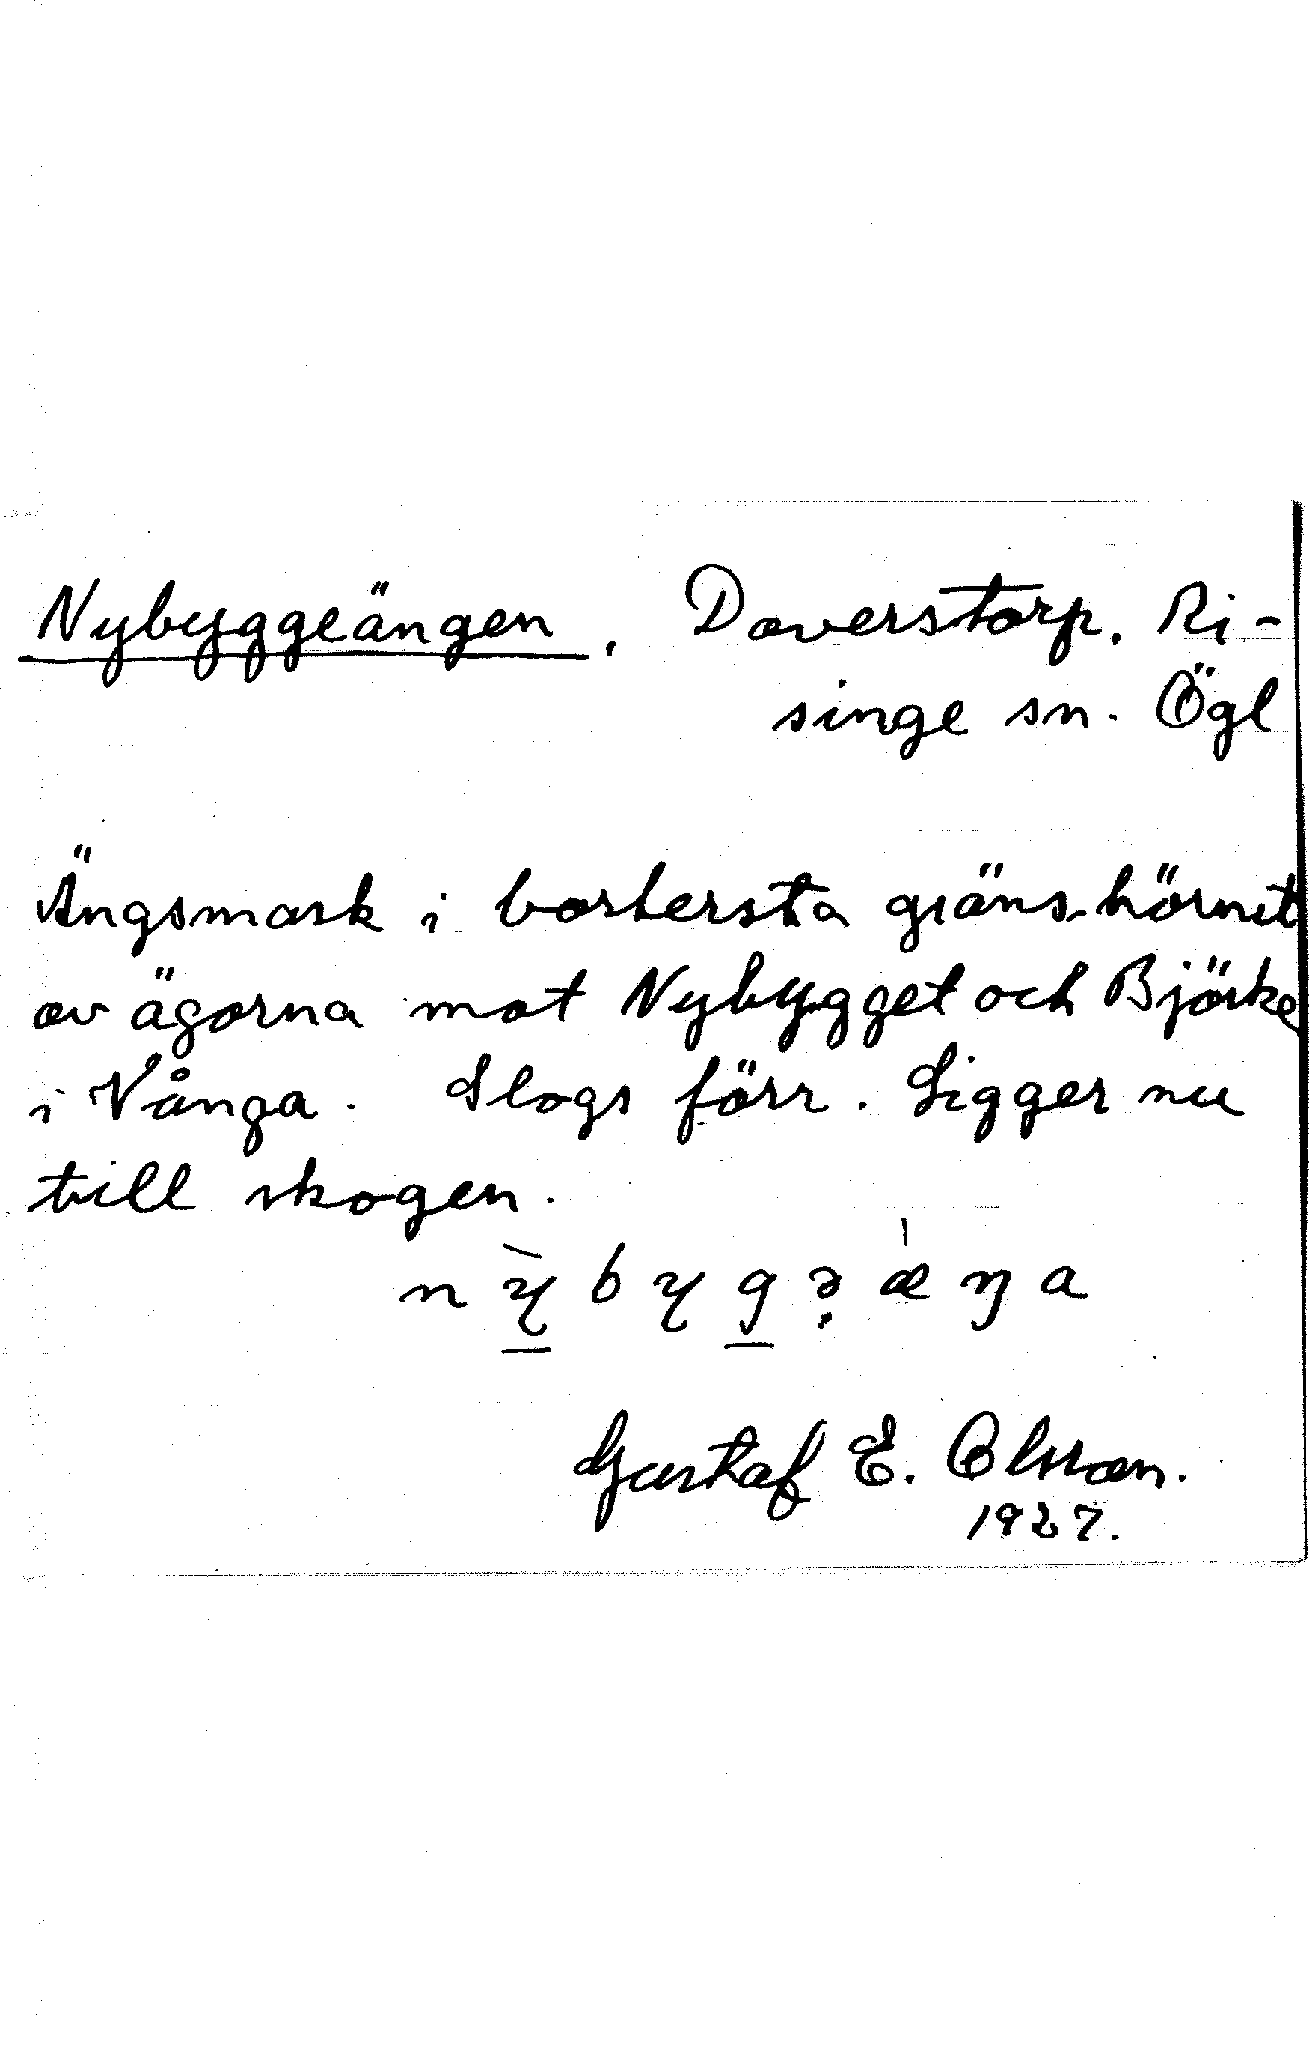 Nybyggeängen, Daverstorp, Ri-
singe sn. Ögl
Ängsmark i bortersta gränshörnet
av ägorna mot Nybygget och Björke
i Vånga. Slogs förr. Ligger nu
till skogen.
nỳbygə̣æ̀ŋa
Gustaf E. Olsson.
1927.